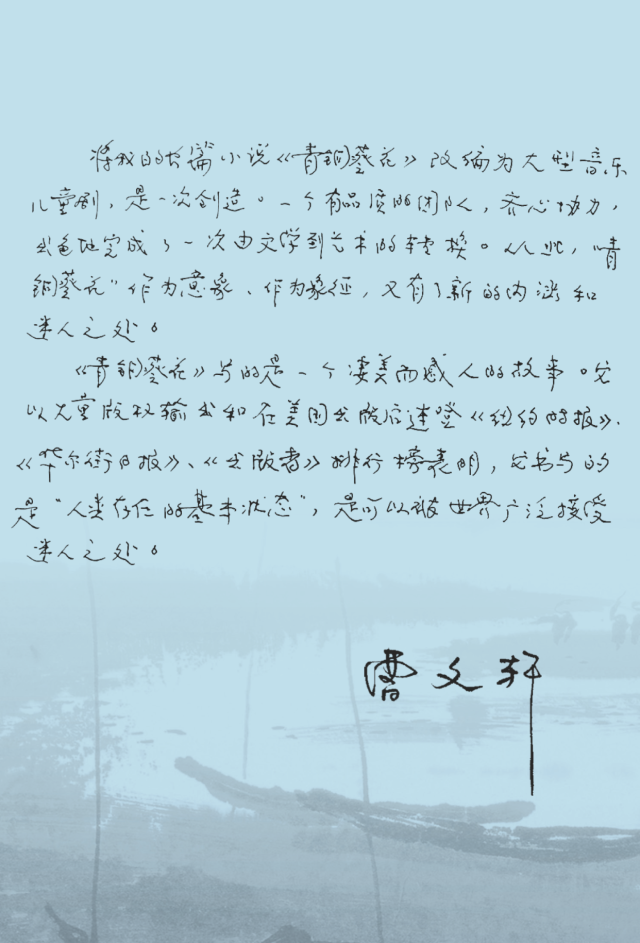 将我的长篇小说《青铜葵花》改编为大型音乐
儿童剧，是一次创造。一个有品质的团队，齐心协力，
出色地完成了一次由文学到艺术的转换。从此，“青
铜葵花”作为意象、作为象征，又有了新的内涵和
迷人之处。
《青铜葵花》写的是一个凄美而感人的故事。它
以大量版权输出和在美国出版后连登《纽约时报》、
《华尔街日报》、《出版者》排行榜表明，它书写的
是“人类存在的基本状态”，是可以被世界广泛接受
迷人之处。
曹文轩